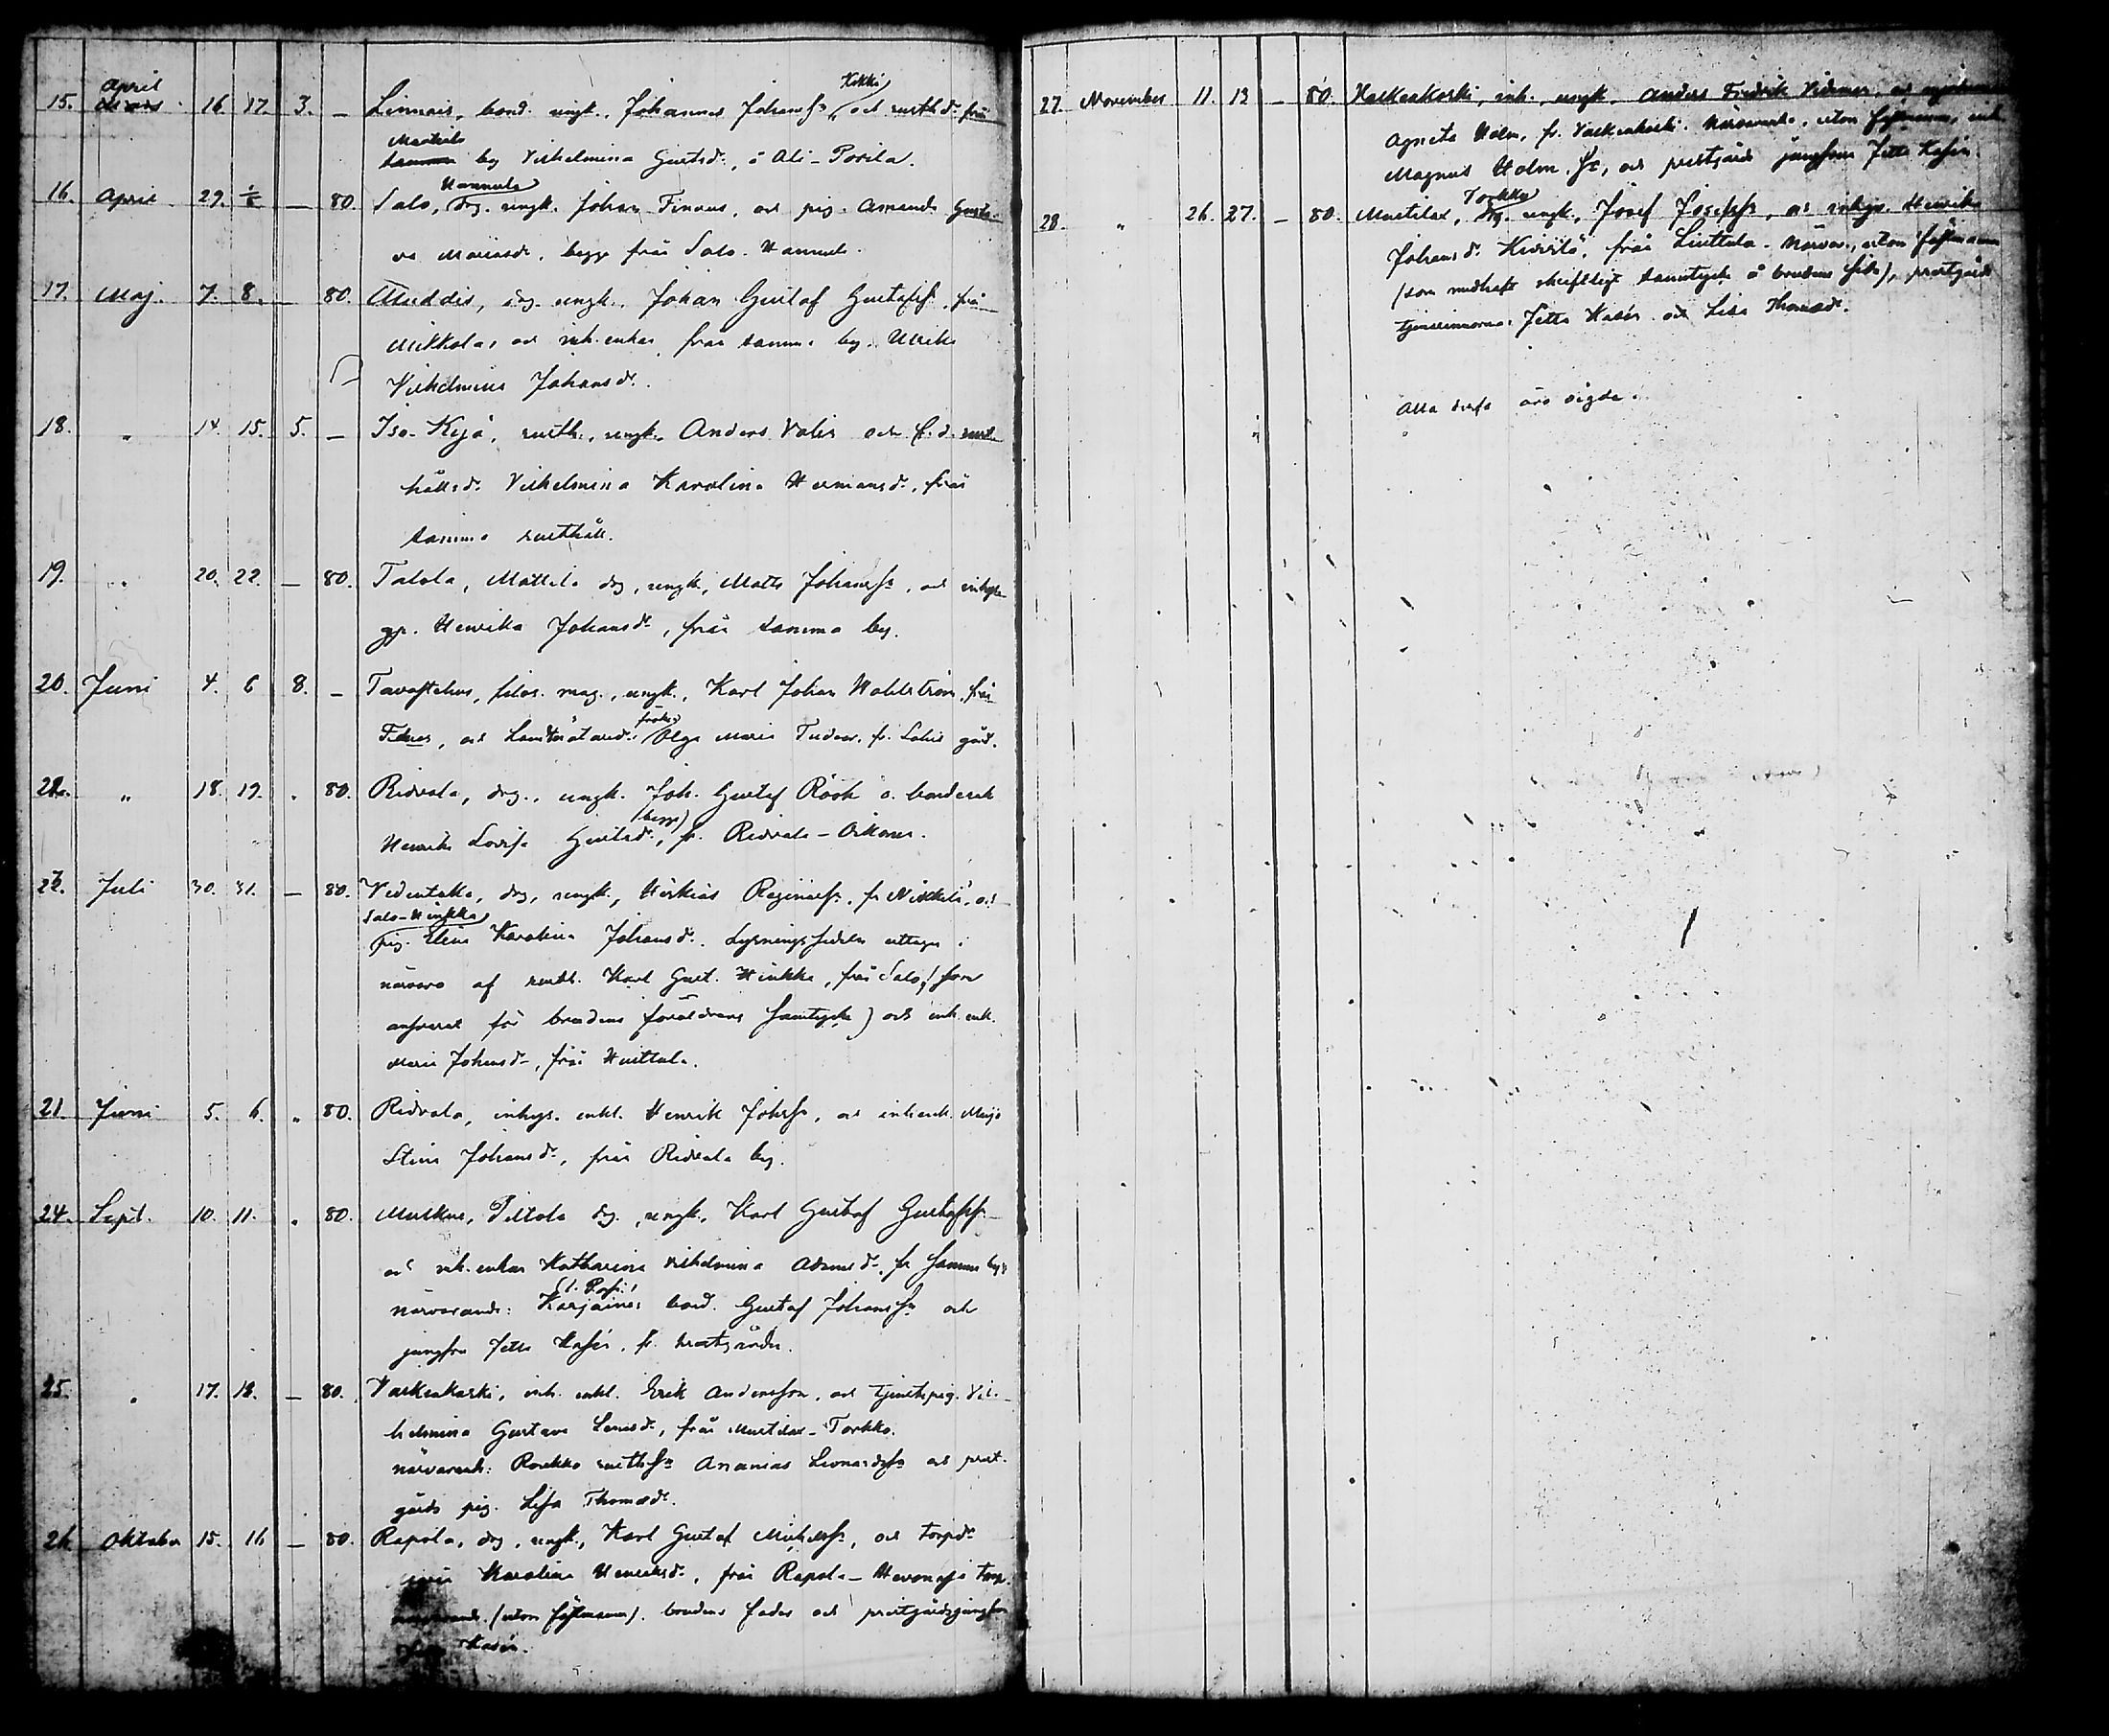 April
15. Mars 16. 17. 3. — Linnais, bond. ungk. Johannes Johansss. Kekki och rusth.dr från
Markits
samma by Vilhelmina Gustsdr., i Ali-Porila.
Hannula
16. April 29. 80. Salo, drg. ungk. Johan Finnus, och pig. Amanda
Mariasdr. begge från Salo-Hannula.
17. Maj. 7. 8. — 80. Muddis, drg. ungk. Johan Gustaf Gustafss. från
Mikkola, och inh. enkan från samma by, Ulrika
Vilhelmina Johansdr.
18. „ 14. 15. 5. — Iso-Kyjä, rusth., ungk. Anders Valis och f.d. rust-
hålls dr. Vilhelmina Karolina Hermansdr., från
samma rusthåll.
19. „ 20. 22. — 80. Talola, Mattila drg, ungk., Matts Johanss., och inhys
gp. Henrika Johansdr., från samma by.
20. Juni 4. 6 8. — Tavastehus, filos. mag., ungk., Karl Johan Wahlström, från
fröken
och Olga Maria Tudeer, fr. Lahis gård.
22. „ 18. 19. . 80. Ridvala, drg., ungk. Joh. Gustaf Röök o. bondenk
(begge)
Henrika Lovisa Gustsdr., fr. Ridvala-Oikonen.
27. Juli 30. 31. — 80. Videntaka, drg, ungk., Heikias Reginass., fr Nikkilä, och
Salo-Hinkka
pig. Elina Karolina Johansdr. Lysningssedeln uttagen i
närvaro af rusth. Karl Gust. Hinkka, från Salo, (som
ansvarat för brudens föräldrars samtycke) och inh. enk.
Maria Johansdr, från Huittula.
21. Juni 5. 6. „ 80. Ridvala, inhys. enkl. Henrik Johss., och inh enk. Maja
Stina Johansdr., från Ridvala by.
24. Sept. 10. 11. „ 80. Muskur, Piltola drg., ungk., Karl Gustaf Gustafss.
och inh. enkan Katharina Vilhelmina Adamsdr., fr samma by.
närvarande: Karjainen bond. Gustaf Johanss. och
jungfru Jetta Kasén, fr. prestgården.
25. „ 17. 18. — 80. Valkiakoski, inh. enkl. Erik Andersson, och tjenstepig. Vil-
helmina Gustava Samsdr., från Mustilax-Torkko.
närvarande: Roukko rusthss. Ananias Leonardss. och prest-
gårds pig. Lisa Thomasdr.
26. Oktober 15. 16 — 80. Rapola, drg, ungk., Karl Gustaf Michelss., och torpdr.
Karolina Henriksdr., från Rapola-Hevonoja torp.
(utom fästmannen) brudens fader och prestgårdsjungfrun
Kasén.
27. November 11. 13 — 80. Valkiakoski, inh., ungk. Anders Fredrik Videman, och
Agneta Holm, fr. Valkiakoski. Närvarande, utom fästmannen, inh
Magnus Holm, och prestgårds jungfrun Jetta Kasén.
Torkko
28. „ 26. 27. — 80. Mustilax, drg. ungk., Josef Josefss., och inhys. Henrika
Johansdr. Kivistö, från Liuttula. Närvar., utom fästmannen
(som medhaft skriftligt samtycke å brudens sida), prestgårds
tjensterinnorna Jetta Kasén och Lisa Thomasdr.
Alla dessa äro vigde.